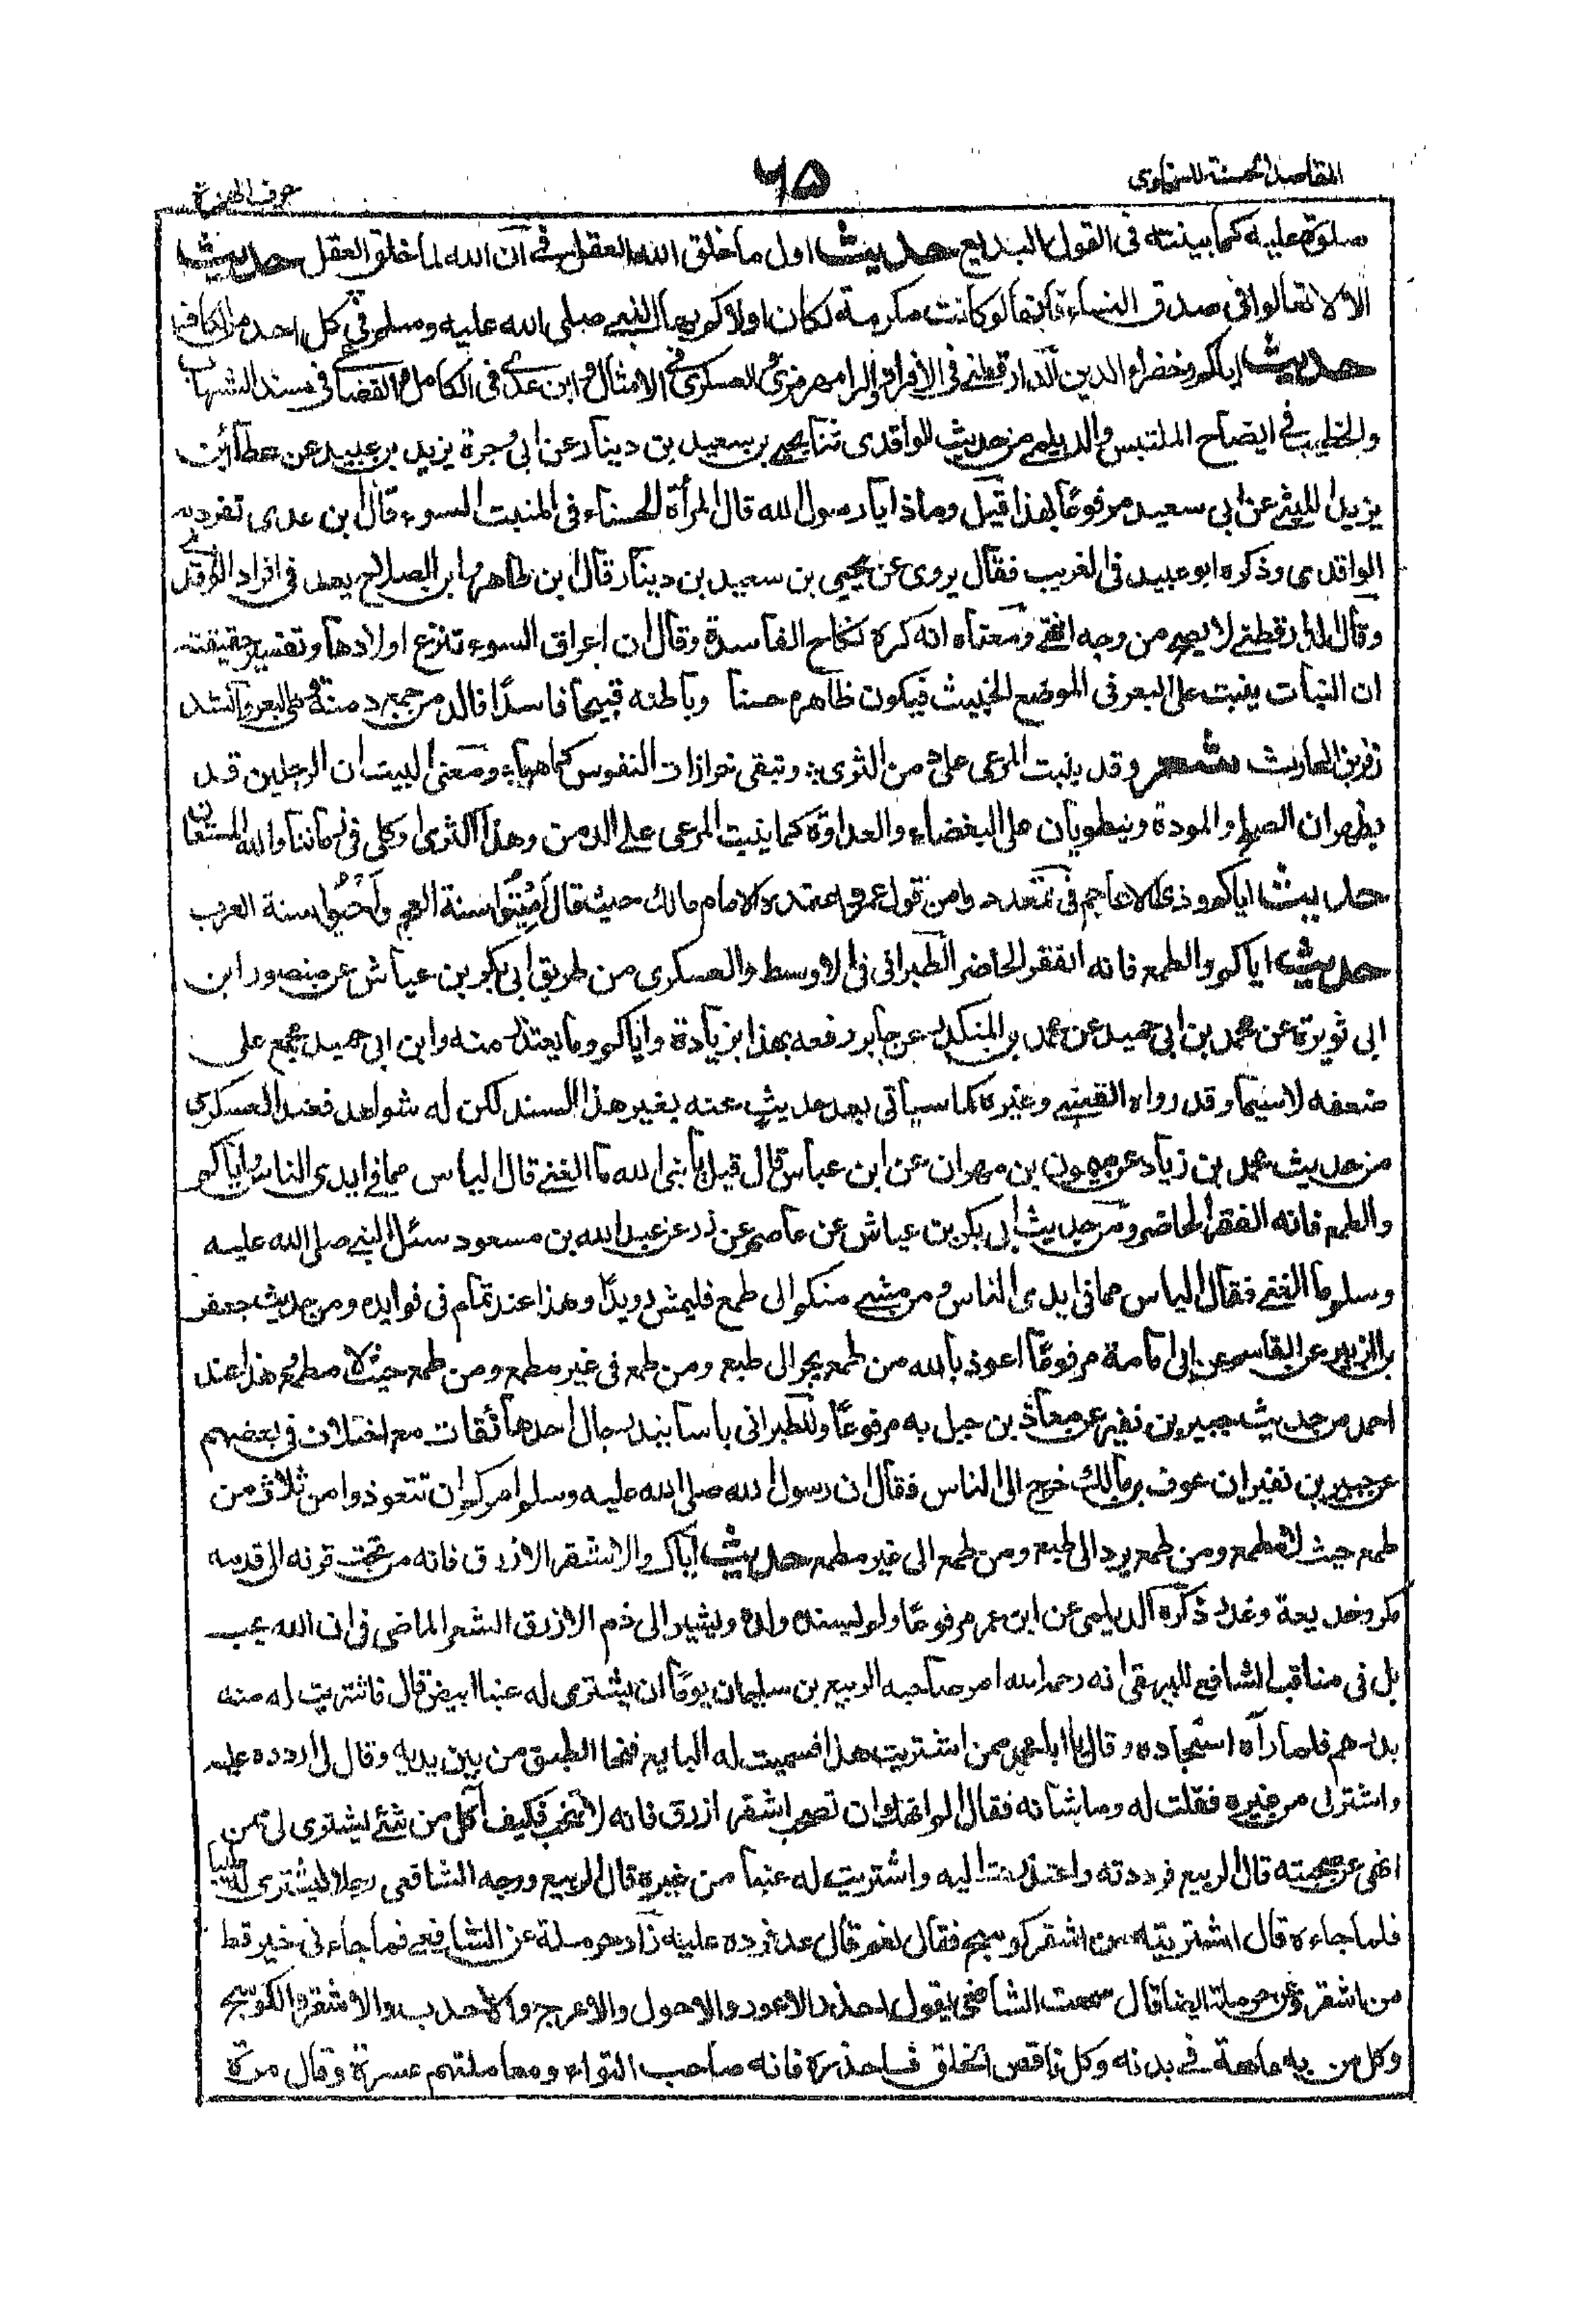 المقاصد الحسنة للسخاوى
٦٥
حرف الهمزة
صلوة عليه كما بينته فى القول البديع حديث اول ما خلق الله العقل فى ان الله لما خلق العقل حديث
الا لا تغالوا فى صدق النساء فانها لو كانت مكرمة لكان اولاكم بها النبى صلى الله عليه وسلم فى كل احد من الكافة
حديث اياكم وخضراء الدمن الدارقطنى فى الافراد والرامهرمزى والعسكرى فى الامثال وابن عدى فى الكامل والقضاعى فى مسند الشهاب
والخطيب فى ايضاح الملتبس والديلمى من حديث الواقدى ثنا يحيى بن سعيد بن دينار عن ابى وجزة يزيد بن عبيد عن عطاء بن
يزيد الليثى عن ابى سعيد مرفوعا بهذا قيل وماذا يا رسول الله قال المرأة الحسناء فى المنبت السوء قال ابن عدى تفرد به
الواقدى وذكره ابو عبيد فى الغريب فقال يروى عن يحيى بن سعيد بن دينار قال ابن طاهر وابن الصلاح يعد فى افراد الواقدى
وقال الدارقطنى لا يصح من وجه انتهى ومعناه انه كره نكاح الفاسدة وقال ان اعراق السوء تنزع اولادها وتفسير حقيقته
ان النبات ينبت على البعر فى الموضع الخبيث فيكون ظاهره حسنا وباطنه قبيحا فاسدا فالدمن جمع دمنة وهى البعر وانشد
زفر بن الحارث شعر وقد ينبت المرعى على دمن الثرى ؛ وتبقى حزازات النفوس كما هيا ؛ ومعنى البيت ان الرجلين قد
يظهران الصلح والمودة وينطويان على البغضاء والعداوة كما ينبت المرعى على الدمن وهذا اكثرى او كلى فى زماننا والله المستعان
حديث اياكم وزى الاعاجم فى تمعددوا من قول عمر واعتمده الامام مالك حيث قال اميتوا سنة العجم واحيوا سنة العرب
حديث اياكم والطمع فانه الفقر الحاضر الطبرانى فى الاوسط والعسكرى من طريق ابى بكر بن عياش عن منصور ابن
ابى نويرة عن محمد بن ابى حميد عن محمد بن المنكدر عن جابر رفعه بهذا بزيادة واياكم وما يعتذر منه وابن ابى حميد مجمع على
ضعفه لا سيما وقد رواه القعنبى وغيره كما سياتى بعد حديث عنه بغير هذا السند لكن له شواهد فعند العسكرى
من حديث محمد بن زياد عن ميمون بن مهران عن ابن عباس قال قيل يا نبى الله ما الغنى قال الياس مما فى ايدى الناس واياكم
والطمع فانه الفقر الحاضر ومن حديث ابى بكر بن عياش عن عاصم عن زر عن عبد الله بن مسعود سئل النبى صلى الله عليه
وسلم ما الغنى فقال الياس مما فى ايدى الناس ومن مشى منكم الى طمع فليمش رويدا وهذا عند تمام فى فوايده ومن حديث جعفر
بن الزبير عن القاسم عن ابى امامة مرفوعا اعوذ بالله من طمع يجر الى طبع ومن طمع فى غير مطمع ومن طمع حيث لا مطمع وهذا عند
احمد من حديث جبير بن نفير عن معاذ بن جبل به مرفوعا وللطبرانى باسانيد رجال احدها ثقات مع اختلاف فى بعضهم
عن جبير بن نفير ان عوف بن مالك خرج الى الناس فقال ان رسول الله صلى الله عليه وسلم امركم ان تتعوذوا من ثلاث من
طمع حيث لا مطمع ومن طمع يرد الى طبع ومن طمع الى غير مطمع حديث اياك والاشقر الازرق فانه من تحت قرنه الى قدمه
مكر وخديعة وغدر ذكره الديلمى عن ابن عمر مرفوعا ولم يسنده ولده ويشير الى ذم الازرق الشعر الماضى فى ان الله يحب
بل فى مناقب الشافعى للبيهقى انه رحمه الله امر صاحبه الربيع بن سليمان يوما ان يشترى له عنبا ابيض قال فاشتريت له منه
بدرهم فلما رآه استجاده وقال يا ابا محمد ممن اشتريت هذا فسميت له البايع فنحا الطبق من بين يديه وقال لى اردده عليه
واشتر لى من غيره فقلت له وما شانه فقال الم انهك ان تصحب اشقر ازرق فانه لا ينجب فكيف آكل من شئ يشترى لى ممن
انهى عن صحبته قال الربيع فرددته واعتذرت اليه واشتريت له عنبا من غيره قال الربيع ووجه الشافعى رجلا ليشترى له طيبا
فلما جاءه قال اشتريته من اشقر كوسج فقال نعم قال عد فرده عليه زاد حرملة عن الشافعى فما جاءنى خير قط
من اشقر وعن حرملة ايضا قال سمعت الشافعى يقول احذر الاعور والاحول والاعرج والاحدب والاشقر والكوسج
وكل من به عاهة فى بدنه وكل ناقص الخلق فاحذره فانه صاحب التواء ومعاملتهم عسرة وقال مرة